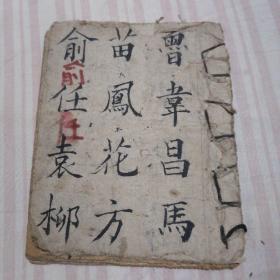 魯韋昌馬
苗鳳花方
俞任袁柳
俞任